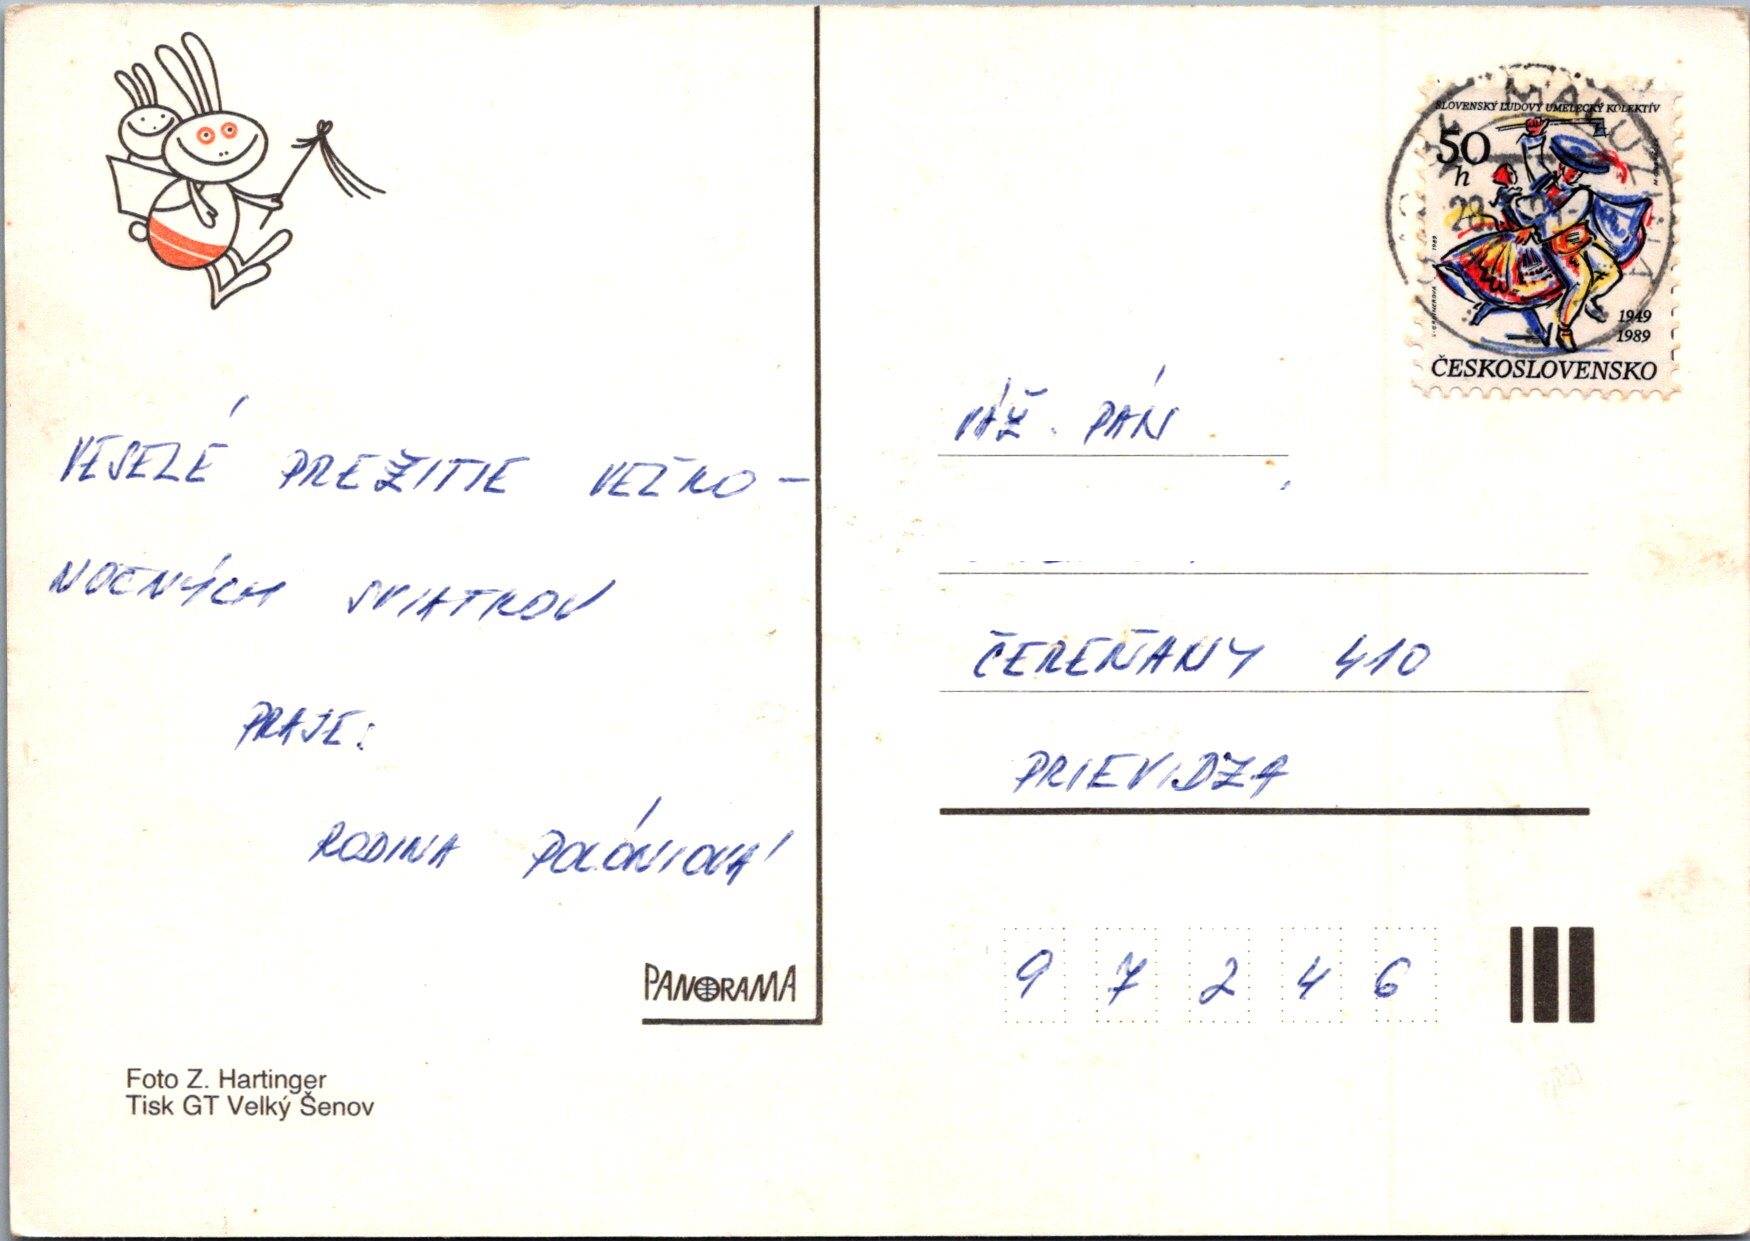 VESELÉ PREŽITIE VEĽKO-
NOČNÝCH SVIATKOV
PRAJE:
RODINA POLÓNIOVÁ
PANORAMA
Foto Z. Hartinger
Tisk GT Velký Šenov
SLOVENSKÝ ĽUDOVÝ UMELECKÝ KOLEKTÍV
50
h
1949
1989
ČESKOSLOVENSKO
VÁŽ. PÁN
ČEREŇANY 410
PRIEVIDZA
9 7 2 4 6